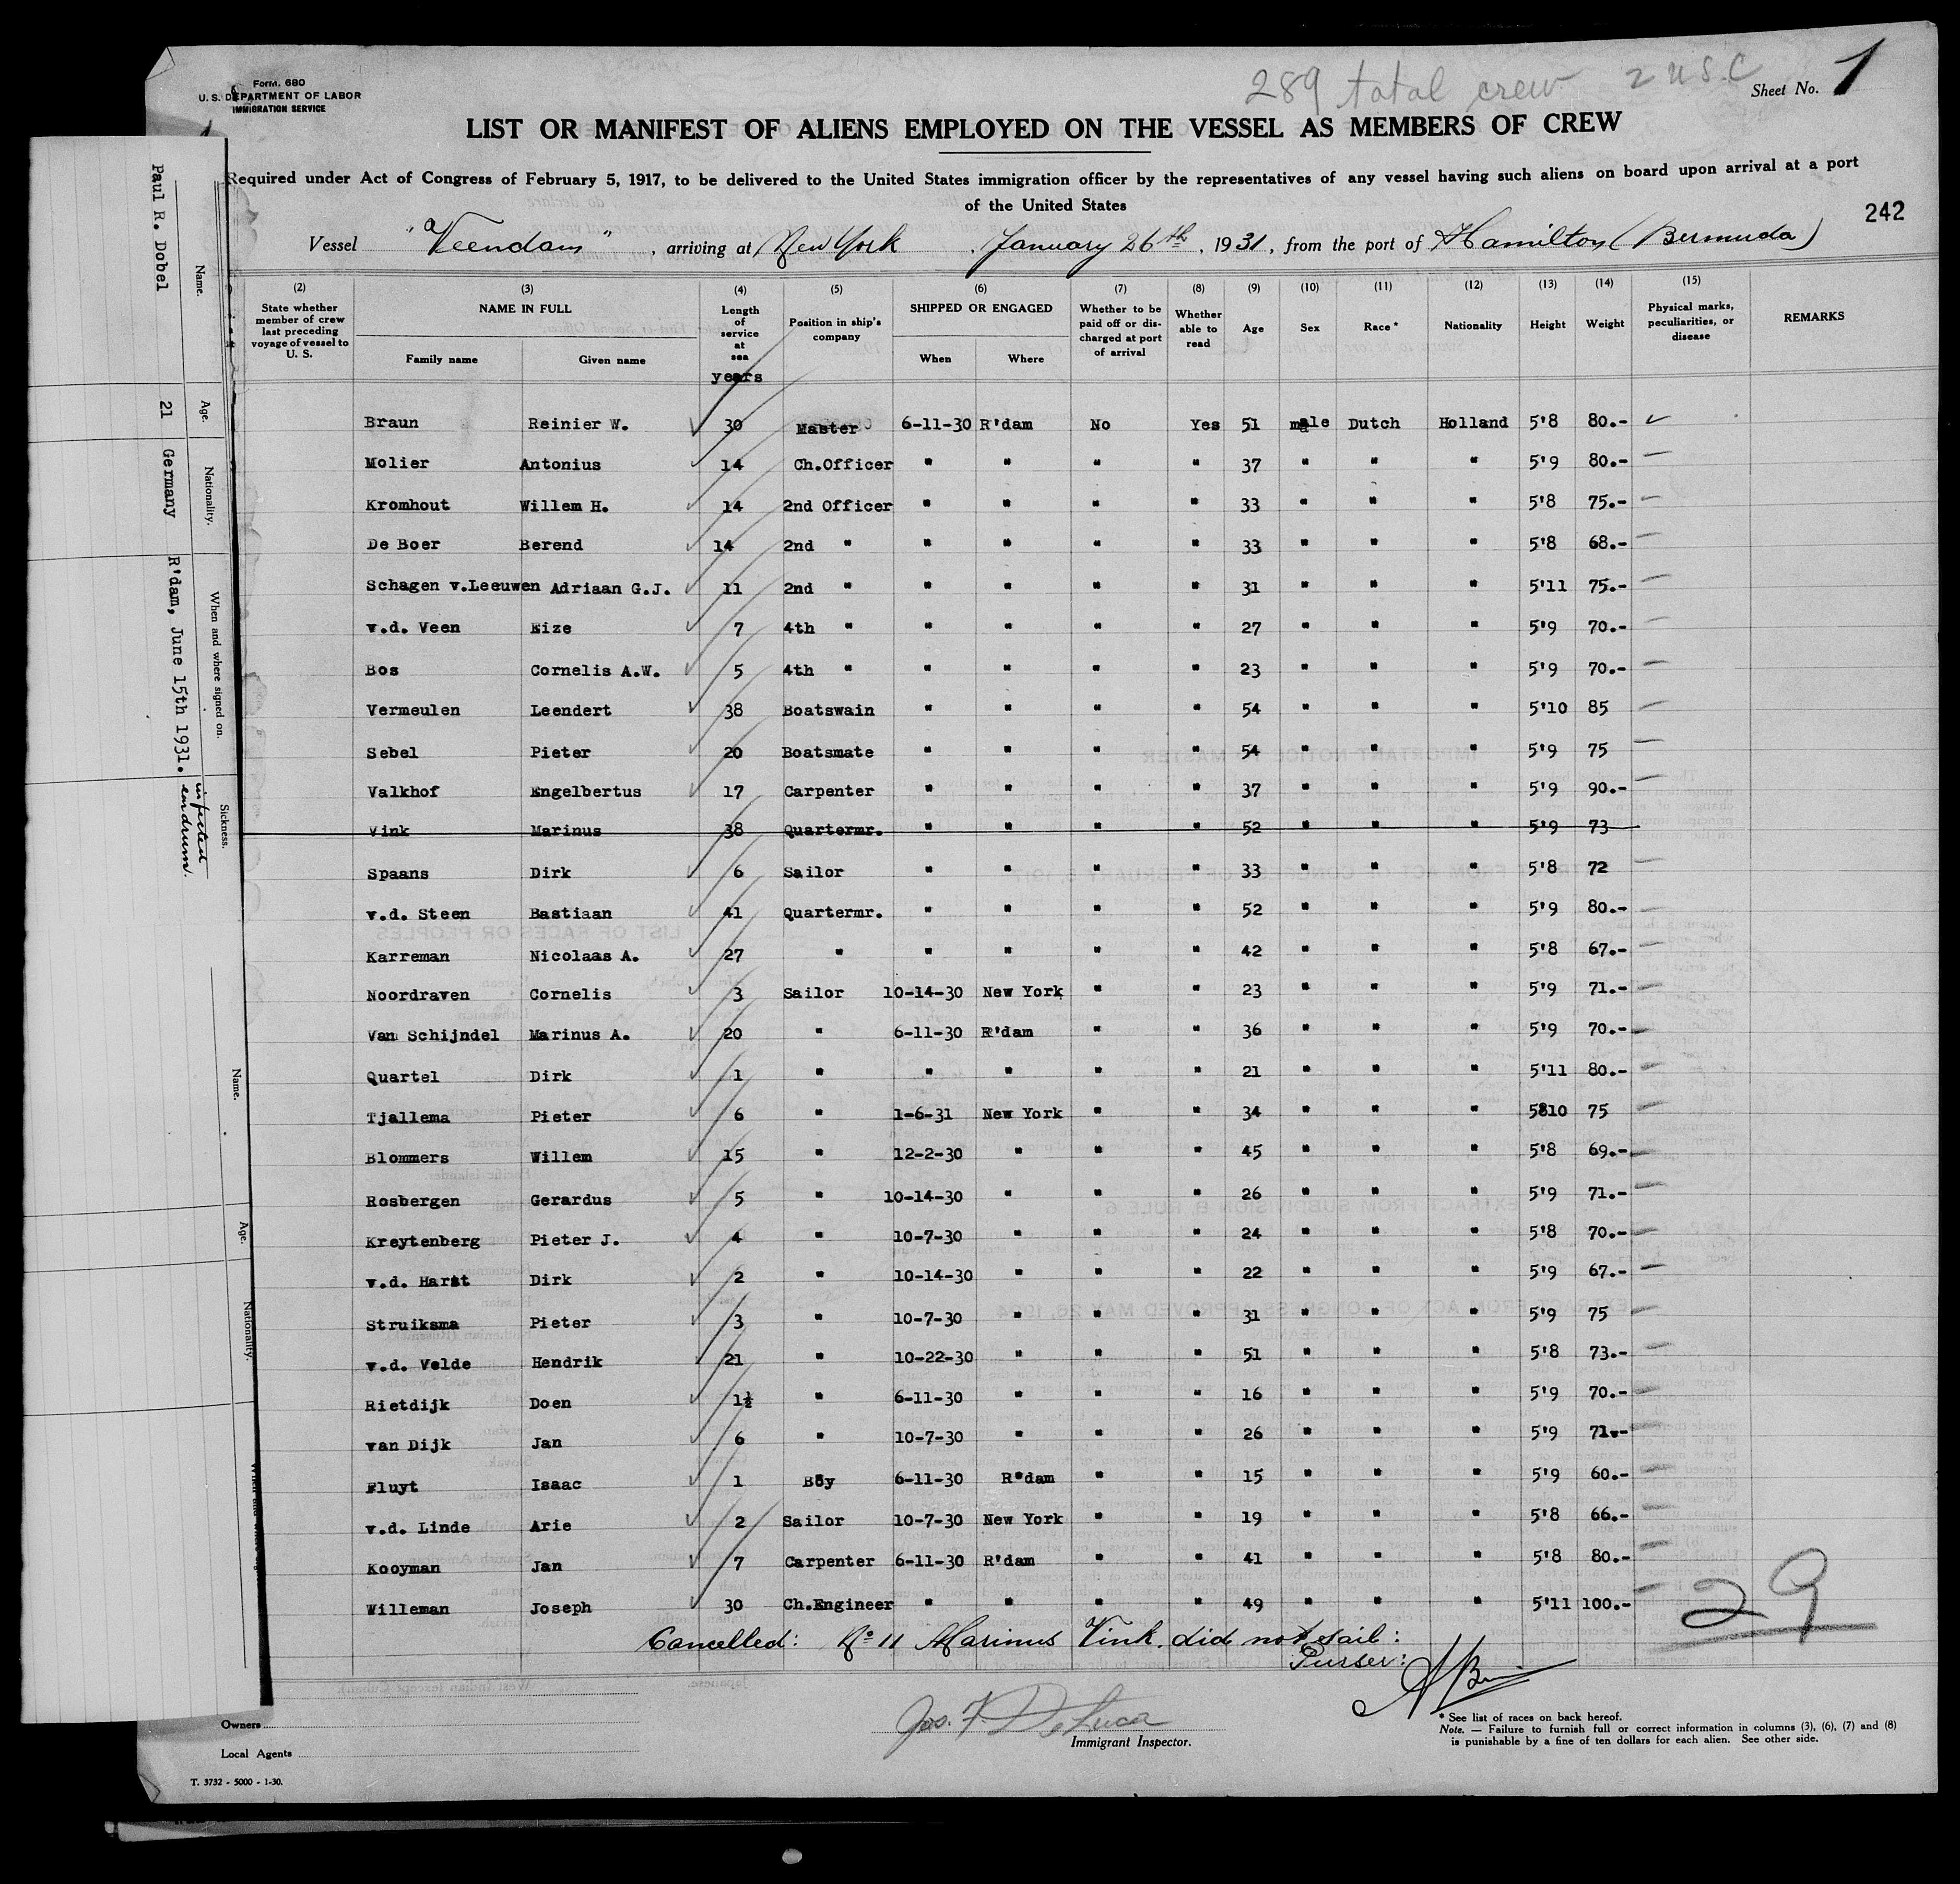 289 total crew 2 U.S.C
Form. 680
U. S. DEPARTMENT OF LABOR
IMMIGRATION SERVICE
Sheet No. 1
LIST OR MANIFEST OF ALIENS EMPLOYED ON THE VESSEL AS MEMBERS OF CREW
Required under Act of Congress of February 5, 1917, to be delivered to the United States immigration officer by the representatives of any vessel having such aliens on board upon arrival at a port
of the United States
242
Vessel "Veendam", arriving at New York, January 26th, 1931, from the port of Hamilton (Bermuda)
(2) (3) (4) (5) (6) (7) (8) (9) (10) (11) (12) (13) (14) (15)
State whether member of crew last preceding voyage of vessel to U. S. NAME IN FULL Family name Given name Length of service at sea years Position in ship's company SHIPPED OR ENGAGED When Where Whether to be paid off or discharged at port of arrival Whether able to read Age Sex Race* Nationality Height Weight Physical marks, peculiarities, or disease REMARKS
Braun Reinier W. 30 Master 6-11-30 R'dam No Yes 51 male Dutch Holland 5'8 80.-
Molier Antonius 14 Ch.Officer " " " " 37 " " " 5'9 80.-
Kromhout Willem H. 14 2nd Officer " " " " 33 " " " 5'8 75.-
De Boer Berend 14 2nd " " " " " 33 " " " 5'8 68.-
Schagen v.Leeuwen Adriaan G.J. 11 2nd " " " " " 31 " " " 5'11 75.-
v.d. Veen Eize 7 4th " " " " " 27 " " " 5'9 70.-
Bos Cornelis A.W. 5 4th " " " " " 23 " " " 5'9 70.-
Vermeulen Leendert 38 Boatswain " " " " 54 " " " 5'10 85
Sebel Pieter 20 Boatsmate " " " " 54 " " " 5'9 75
Valkhof Engelbertus 17 Carpenter " " " " 37 " " " 5'9 90.-
Vink Marinus 38 Quartermr. " " " " 52 " " " 5'9 73
Spaans Dirk 6 Sailor " " " " 33 " " " 5'8 72
v.d. Steen Bastiaan 41 Quartermr. " " " " 52 " " " 5'9 80.-
Karreman Nicolaas A. 27 " " " " " 42 " " " 5'8 67.-
Noordraven Cornelis 3 Sailor 10-14-30 New York " " 23 " " " 5'9 71.-
Van Schijndel Marinus A. 20 " 6-11-30 R'dam " " 36 " " " 5'9 70.-
Quartel Dirk 1 " " " " " 21 " " " 5'11 80.-
Tjallema Pieter 6 " 1-6-31 New York " " 34 " " " 5'10 75
Blommers Willem 15 " 12-2-30 " " " 45 " " " 5'8 69.-
Rosbergen Gerardus 5 " 10-14-30 " " " 26 " " " 5'9 71.-
Kreytenberg Pieter J. 4 " 10-7-30 " " " 24 " " " 5'8 70.-
v.d. Harst Dirk 2 " 10-14-30 " " " 22 " " " 5'9 67.-
Struiksma Pieter 3 " 10-7-30 " " " 31 " " " 5'9 75
v.d. Velde Hendrik 21 " 10-22-30 " " " 51 " " " 5'8 73.-
Rietdijk Doen 1½ " 6-11-30 " " " 16 " " " 5'9 70.-
van Dijk Jan 6 " 10-7-30 " " " 26 " " " 5'9 71.-
Fluyt Isaac 1 Boy 6-11-30 R'dam " " 15 " " " 5'9 60.-
v.d. Linde Arie 2 Sailor 10-7-30 New York " " 19 " " " 5'8 66.-
Kooyman Jan 7 Carpenter 6-11-30 R'dam " " 41 " " " 5'8 80.-
Willeman Joseph 30 Ch.Engineer " " " " 49 " " " 5'11 100.-
29
Cancelled: No 11 Marinus Vink. did not sail:
Purser:
Jos. F. DeLuca
Immigrant Inspector.
Owners
Local Agents
* See list of races on back hereof.
Note. — Failure to furnish full or correct information in columns (3), (6), (7) and (8)
is punishable by a fine of ten dollars for each alien. See other side.
T. 3732 - 5000 - 1-30.
Name. Age. Nationality. When and where signed on. Sickness.
Paul R. Dobel 21 Germany R'dam, June 15th 1931. infected
Name. Age. Nationality.